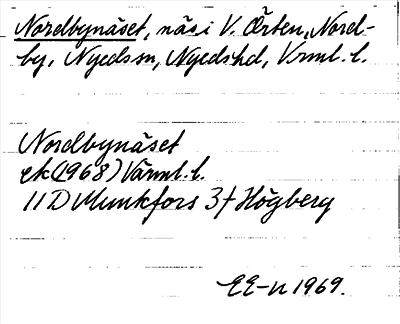 Nordbynäset, näs i V. Örten, Nord-
by, Nyedssn, Nyedshd, Vrml. l.
Nordbynäset
ek (1968) Värml. l.
11 D Munkfors 3 f Högberg
EE-n 1969.